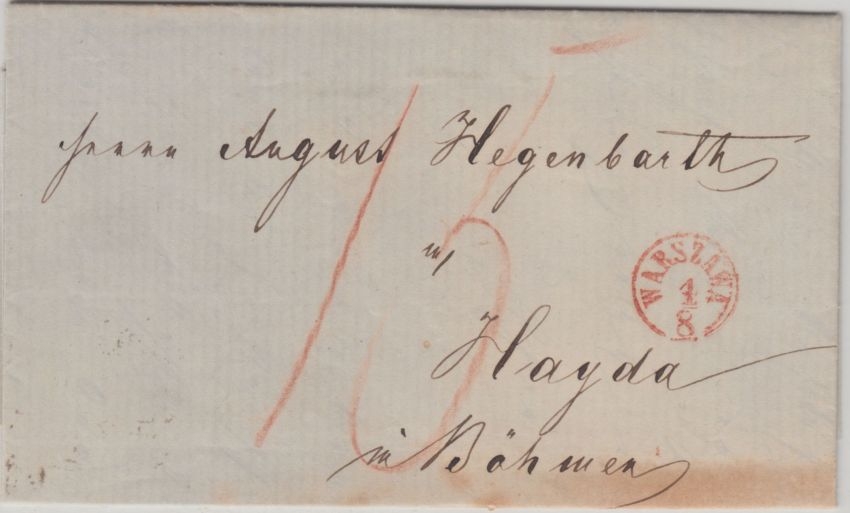 Herrn August Hegenbarth
in
Hayda
in Böhmen
15
WARSZAWA
1/8